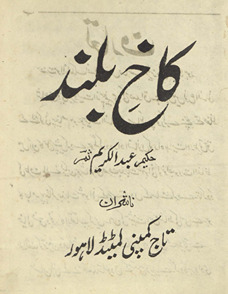 کاخِ بلند
حکیم عبدالکریم ثمرؔ
ناشران
تاج کمپنی لمیٹڈ لاہور